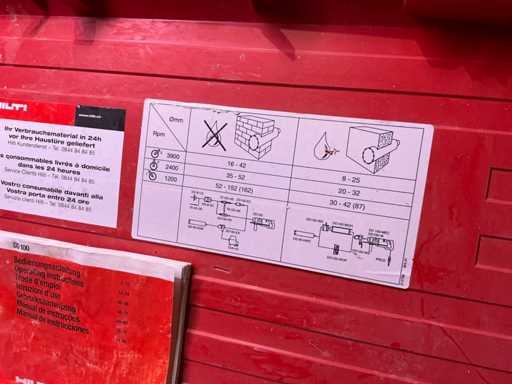 HILTI
Ihr Verbrauchsmaterial in 24h
vor Ihre Haustüre geliefert
Hilti Kundendienst - Tel. 0844 84 84 85
consommables livrés à domicile
dans les 24 heures
Service Clients Hilti - Tél. 0844 84 84 85
Vostro consumabile davanti alla
Vostra porta entro 24 ore
Servizio clienti Hilti - Tel. 0844 84 84 85
Ømm
Rpm
3900
16 - 42
8 - 25
2400
35 - 52
20 - 32
1200
52 - 152 (162)
30 - 42 (87)
DD 100
Bedienungsanleitung
Operating instructions
Mode d'emploi
Istruzioni d'uso
Gebruiksaanwijzing
Manual de instruções
Manual de instrucciones
HILTI